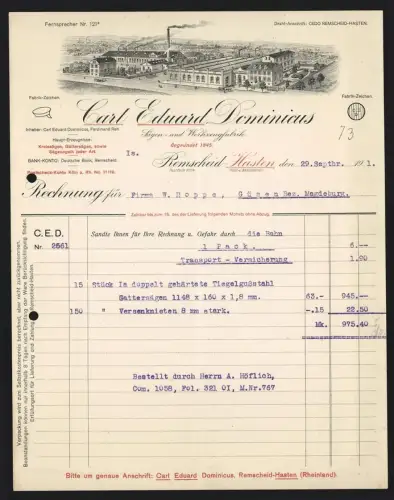 Fernsprecher Nr. 121ª
Draht-Anschrift: CEDO REMSCHEID-HASTEN.
Fabrik-Zeichen.
Fabrik-Zeichen.
Carl Eduard Dominicus
Sägen- und Werkzeugfabrik
Gegründet 1845.
Inhaber: Carl Eduard Dominicus, Ferdinand
Haupt-Erzeugnisse:
Kreissägen, Gattersägen, sowie
Sägespezn jeder Art
BANK-KONTO: Deutsche Bank, Remscheid
Postscheck-Konto: Köln a. Rh. No.
73
Ia.
Remscheid-Hasten den 29.Septbr. 19 1.
Rechnung für Firma W. Hoppe, Güsen Bez. Magdeburg.
Zahlbar bis zum 15. des der Lieferung folgenden Monats ohne Abzug.
C.E.D. Sandte Ihnen für Ihre Rechnung u. Gefahr durch die Bahn
Nr. 2661 1 Pack. 6.—
Transport - Versicherung 1.90
15 Stück Ia doppelt gehärtete Tiegelgußstahl
Gattersägen 1148 x 160 x 1,8 mm. 63.- 945.—
150 " Versenknieten 8 mm stark. -.15 22.50
Mk. 975.40
Bestellt durch Herrn A. Höflich,
Com. 1058, Fol. 321 OI, M.Nr.767
Verpackung wird zum Selbstkostenpreis berechnet, aber nicht zurückgenommen.
Beanstandungen können nur innerhalb 8 Tagen nach Empfang der Ware Berücksichtigung finden.
Erfüllungsort für Lieferung und Zahlung ist Remscheid-Hasten.
Bitte um genaue Anschrift: Carl Eduard Dominicus, Remscheid-Hasten (Rheinland).